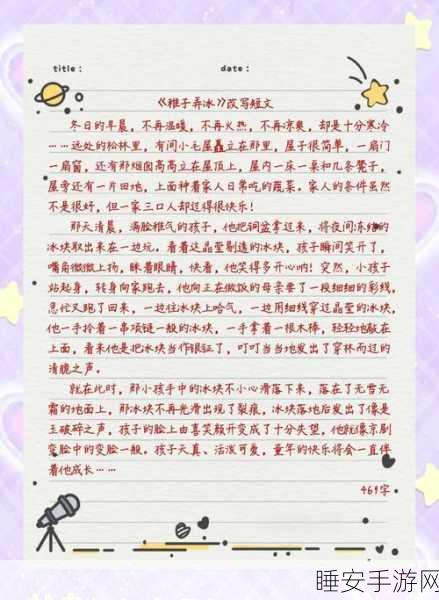 title：
date：
《稚子弄冰》改写短文
冬日的早晨，不再温暖，不再火热，不再凉爽，却是十分寒冷
……远处的松林里，有间小毛屋矗立在那里，屋子很简单，一扇门
一扇窗，还有那烟囱高高立在屋顶上，屋内一床一桌和几条凳子，
屋旁还有一片田地，上面种着家人日常吃的蔬菜。家人的条件虽然
不是很好，但一家三口人却过得很快乐！
那天清晨，满脸稚气的孩子，他把铜盆拿过来，将夜间冻结的
冰块取出来在一边玩。看着这晶莹剔透的冰块，孩子瞬间笑开了，
嘴角微微上扬，眯着眼睛，快看，他笑得多开心呐！突然，小孩子
站起身，转身向家跑去，他向正在做饭的母亲要了一根细细的彩线，
急忙又跑了回来，一边往冰块上哈气，一边用细线穿过晶莹的冰块，
他一手拎着一串项链一般的冰块，一手拿着一根木棒，轻轻地敲在
上面，看来他是把冰块当作银钲了，叮叮当当地发出了穿林而过的
清脆之声。
就在此时，那小孩手中的冰块不小心滑落下来，落在了无雪无
霜的地面上，那冰块不再光滑出现了裂痕，冰块落地后发出了像是
玉破碎之声，孩子的脸上由喜笑颜开变成了十分失望，他就像京剧
变脸中的变脸一般。孩子天真、活泼可爱，童年的快乐将会一直伴
着他成长……
469字
睡安手游网